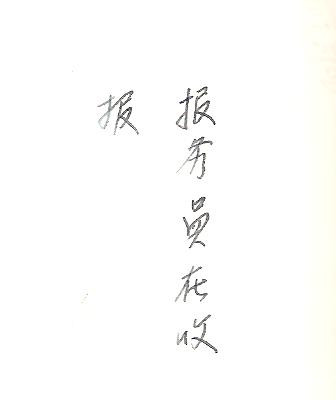 报务员在收
报